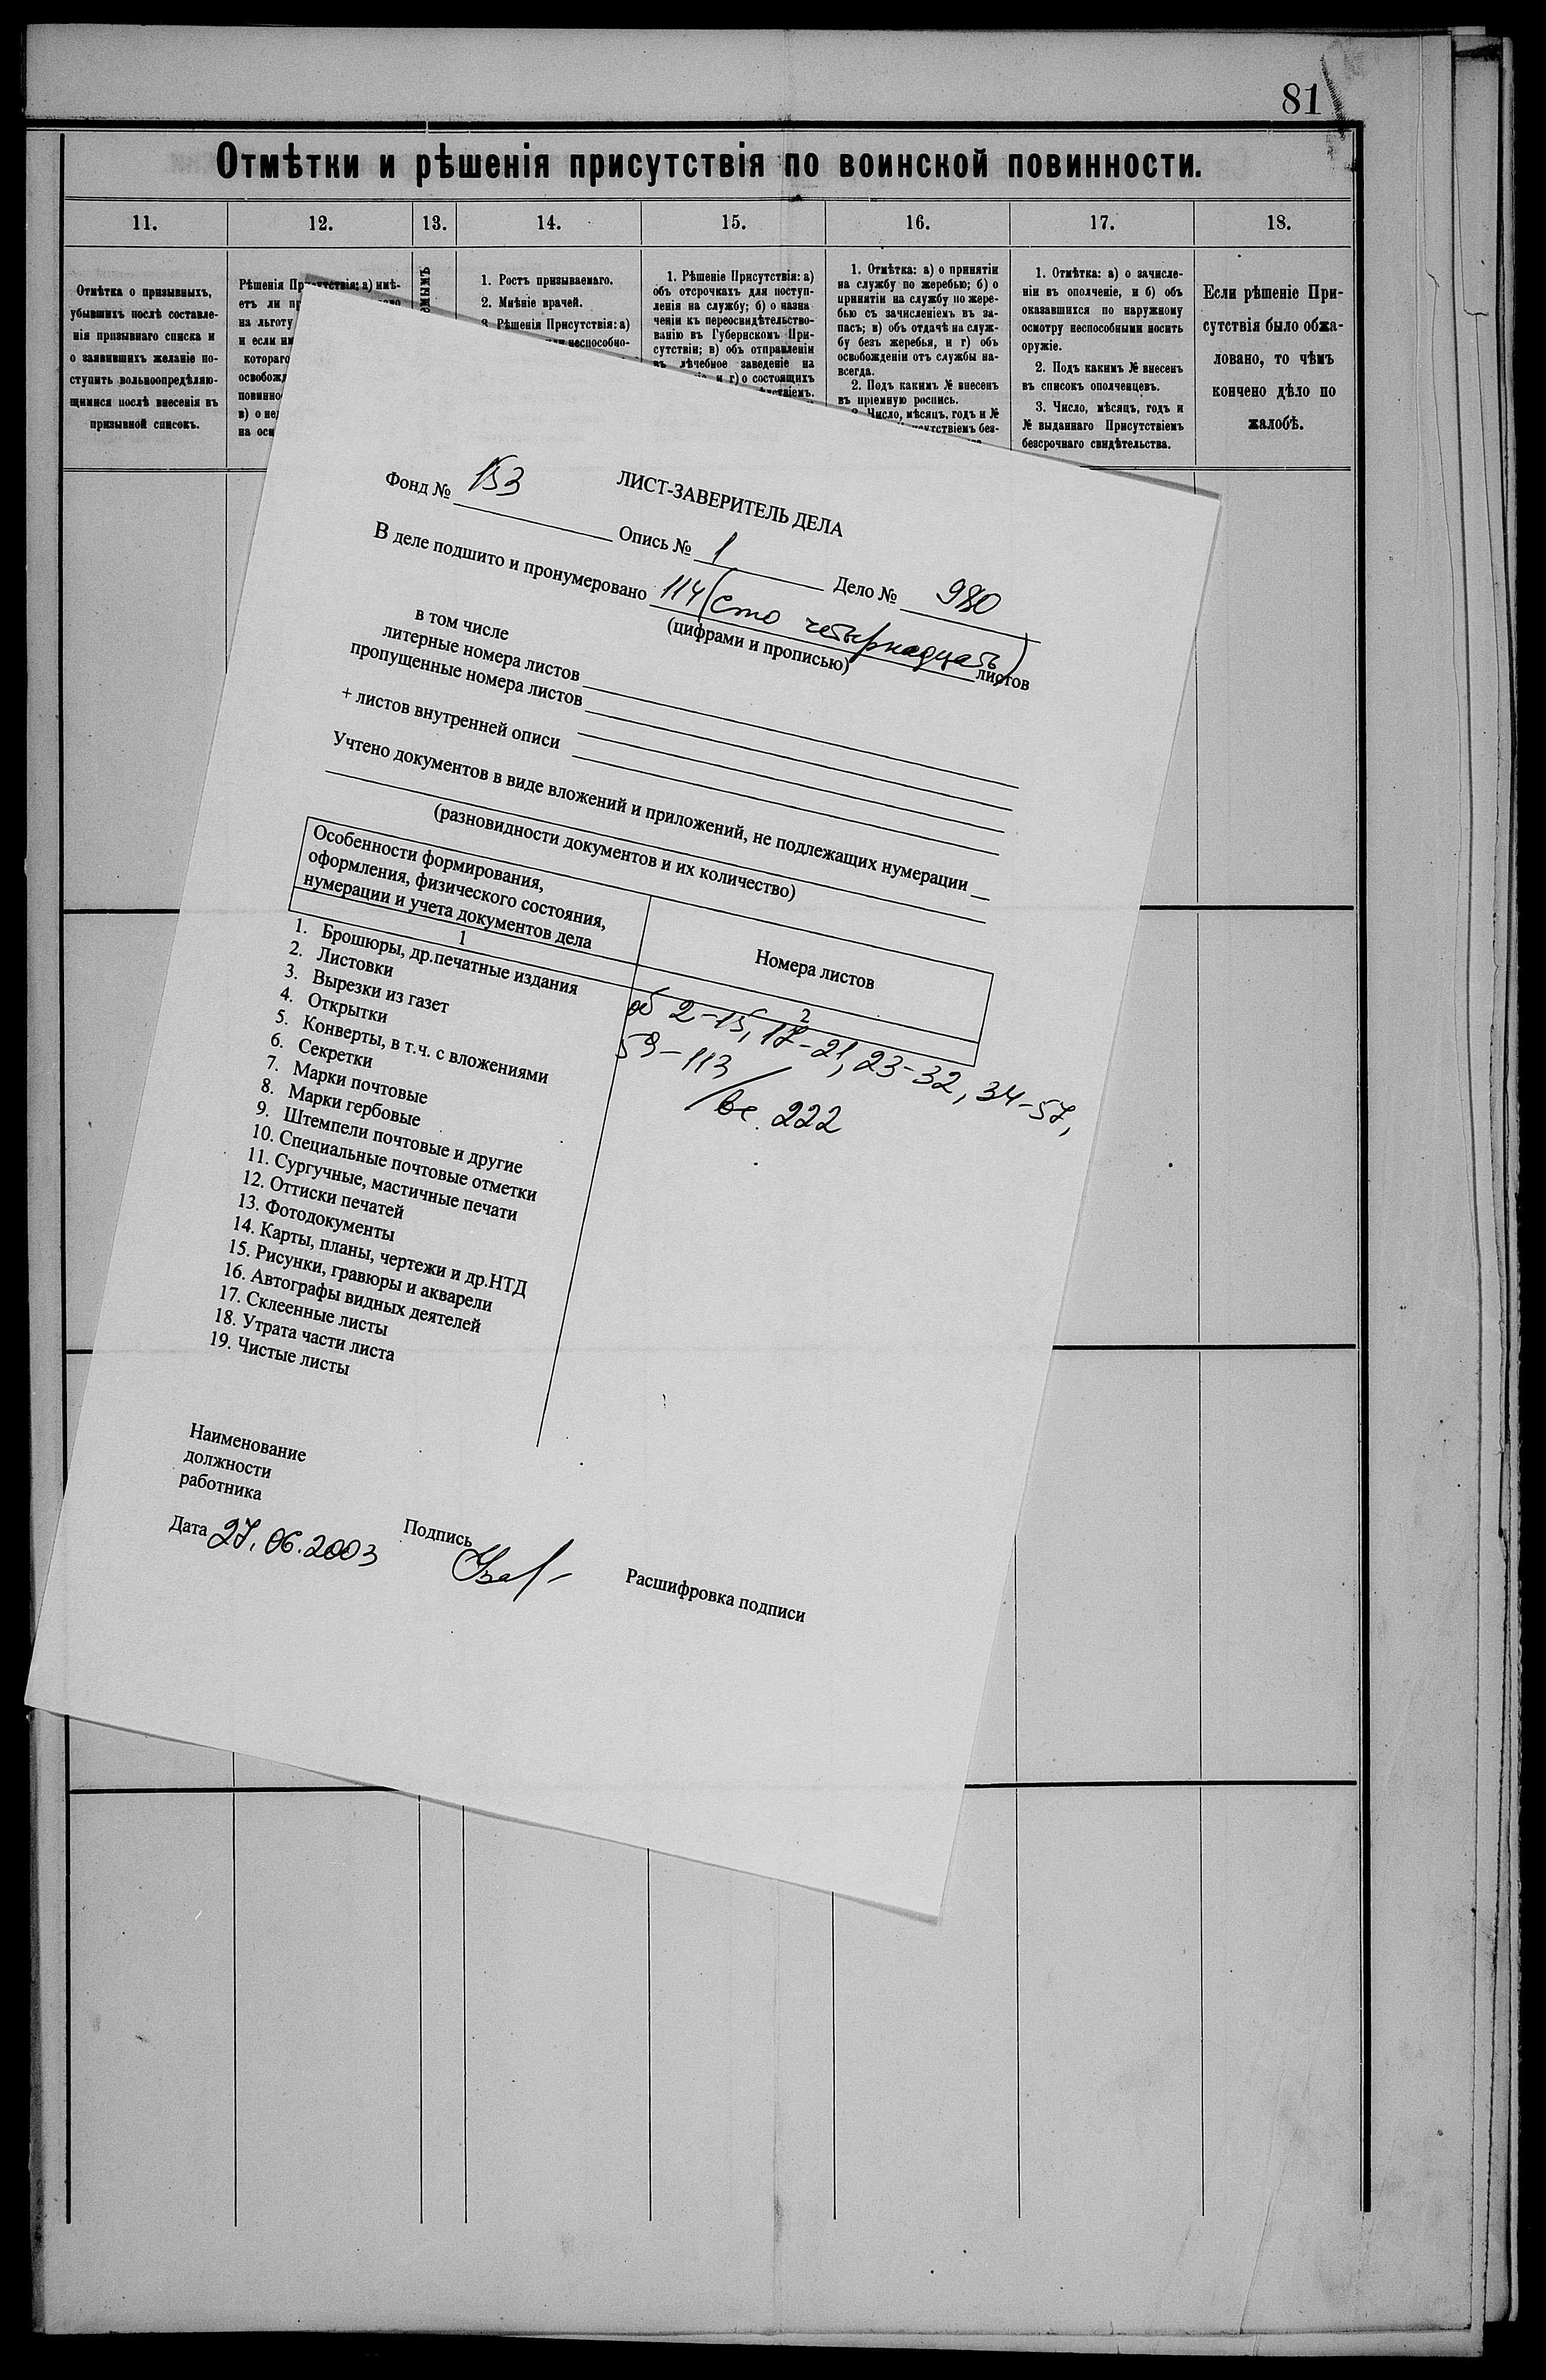 81
Отмѣтки и рѣшенія присутствія по воинской повинности.
11. 12. 13. 14. 15. 16. 17. 18.
Отмѣтка о призывныхъ,
убывшихъ послѣ составле-
нія призывнаго списка и
о заявившихъ желаніе по-
ступить вольноопредѣляю-
щимися послѣ внесенія въ
призывной списокъ.
Рѣшенія а) имѣ-
етъ ли
на льготу
и если
котораго
в) о
на
1. Ростъ призываемаго.
2. Мнѣніе врачей.
3. Рѣшенія Присутствія: а)
неспособно-
1. Рѣшеніе Присутствія: а)
объ отсрочкахъ для поступ-
ленія на службу; б) о назна
ченіи къ переосвидѣтельство-
ванію въ Губернскомъ При-
сутствіи; в) объ отправленіи
въ лѣчебное заведеніе на
и г) о состоящихъ
1. Отмѣтка: а) о принятіи
на службу по жеребью; б) о
принятіи на службу по жере-
бью съ зачисленіемъ въ за-
пасъ; в) объ отдачѣ на служ-
бу безъ жеребья, и г) объ
освобожденіи отъ службы на-
всегда.
2. Подъ какимъ № внесенъ
въ пріемную роспись.
Число, мѣсяцъ, годъ и №
без-
1. Отмѣтка: а) о зачисле-
ніи въ ополченіе, и б) объ
оказавшихся по наружному
осмотру неспособными носить
оружіе.
2. Подъ какимъ № внесенъ
въ списокъ ополченцевъ.
3. Число, мѣсяцъ, годъ и
№ выданнаго Присутствіемъ
безсрочнаго свидѣтельства.
Если рѣшеніе При-
сутствія было обжа-
ловано, то чѣмъ
кончено дѣло по
жалобѣ.
ЛИСТ-ЗАВЕРИТЕЛЬ ДЕЛА
Фонд № 153 Опись № 1 Дело № 980
В деле подшито и пронумеровано 114 (сто четырнадцать) листов
(цифрами и прописью)
в том числе
литерные номера листов
пропущенные номера листов
+ листов внутренней описи
Учтено документов в виде вложений и приложений, не подлежащих нумерации
(разновидности документов и их количество)
Особенности формирования,
оформления, физического состояния,
нумерации и учета документов дела
Номера листов
1 2
1. Брошюры, др.печатные издания
2. Листовки
3. Вырезки из газет
4. Открытки
5. Конверты, в т.ч. с вложениями
6. Секретки
7. Марки почтовые
8. Марки гербовые
9. Штемпели почтовые и другие
10. Специальные почтовые отметки
11. Сургучные, мастичные печати
12. Оттиски печатей
13. Фотодокументы
14. Карты, планы, чертежи и др.НТД
15. Рисунки, гравюры и акварели
16. Автографы видных деятелей
17. Склеенные листы
18. Утрата части листа
19. Чистые листы
об 2-15, 17-21, 23-32, 34-57,
59-113
222
Наименование
должности
работника
Дата 27.06.2003 Подпись Расшифровка подписи